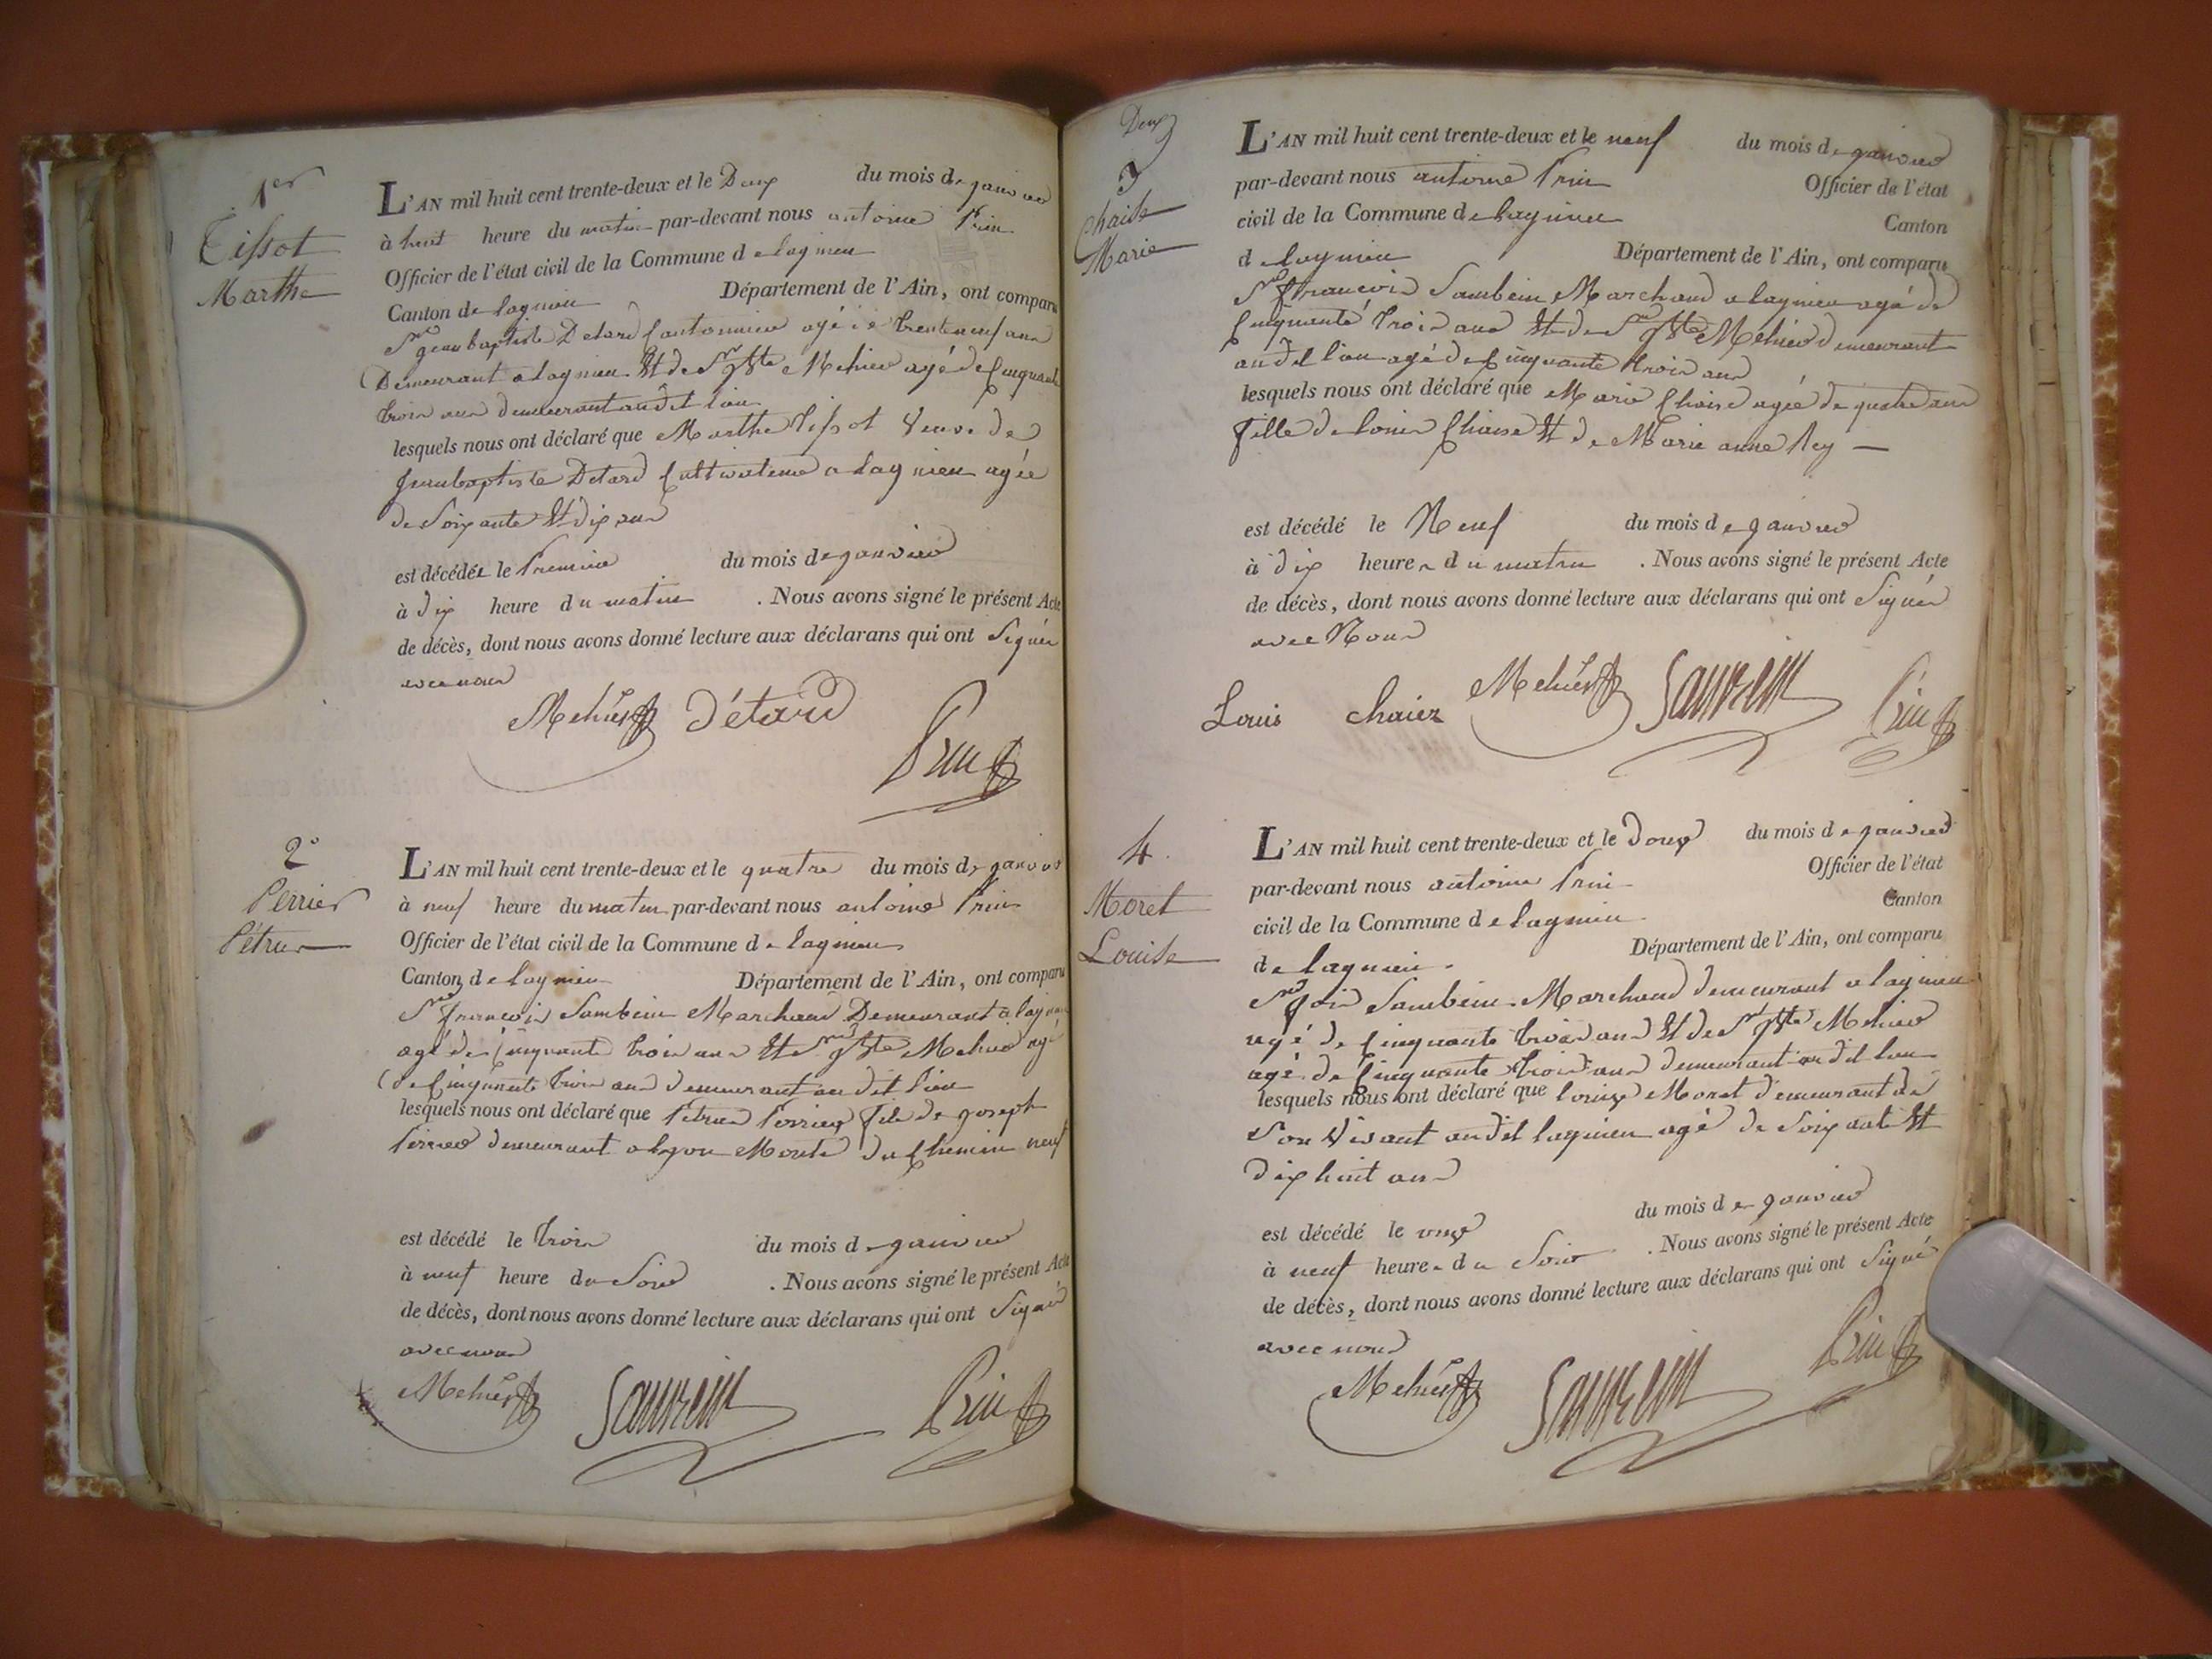 1er
Tissot
Marthe
L'AN mil huit cent trente-deux et le Deux du mois de janvier
à huit heure du matin par-devant nous antoine Prin
Officier de l'état civil de la Commune de lagnieu
Canton de lagnieu Département de l'Ain, ont comparu
Sr jean baptiste Detard Cantonnier agé de trente neuf ans
Demeurant a lagnieu Et de Sr jBte Mehier agé de Cinquante
trois ans demeurant audit lieu
lesquels nous ont déclaré que Marthe tissot Veuve de
jeanbaptiste Detard Cultivateur a lagnieu agée
de Soixante Et dix ans
est décédée le Premier du mois de janvier
à dix heure du matin . Nous avons signé le présent Acte
de décès, dont nous avons donné lecture aux déclarans qui ont Signés
avec nous
Mehier Détard
Prin
2e
Perrier
Pétrus
L'AN mil huit cent trente-deux et le quatre du mois de janvier
à neuf heure du matin par-devant nous antoine Prin
Officier de l'état civil de la Commune de lagnieu
Canton de lagnieu Département de l'Ain, ont comparu
Sr françois Sambein Marchand Demeurant a lagnieu
agé de Cinquante trois ans Et Sr jBte Mehier agé
de Cinquante trois ans demeurant au dit lieu
lesquels nous ont déclaré que Petrus Perrier fils de joseph
Perrier demeurant a lyon Monté du Chemin neuf
est décédé le trois du mois de janvier
à neuf heure du Soir . Nous avons signé le présent Acte
de décès, dont nous avons donné lecture aux déclarans qui ont Signés
avec nous
Mehier Prin
Deux
3
Chaise
Marie
L'AN mil huit cent trente-deux et le neuf du mois de janvier
par-devant nous antoine Prin Officier de l'état
civil de la Commune de lagnieu Canton
de lagnieu Département de l'Ain, ont comparu
Sr françois Sambein Marchand a lagnieu agé de
Cinquante trois ans Et de Sr jBte Mehier demeurant
audit lieu agé de Cinquante trois ans
lesquels nous ont déclaré que Marie Chaise agée de quatre ans
fille de louis Chaise Et de Marie anne Rey
est décédé le Neuf du mois de janvier
à dix heures du matin . Nous avons signé le présent Acte
de décès, dont nous avons donné lecture aux déclarans qui ont Signés
avec Nous
Louis chaiez Mehier Prin
4
Moret
Louise
L'AN mil huit cent trente-deux et le douze du mois de janvier
par-devant nous antoine Prin Officier de l'état
civil de la Commune de lagnieu Canton
de lagnieu. Département de l'Ain, ont comparu
Sr fois Sambein Marchand demeurant a lagnieu
agé de Cinquante trois ans Et de Sr jBte Mehier
agé de Cinquante trois ans demeurant au dit lieu
lesquels nous ont déclaré que louise Moret demeurant de
Son Vivant audit lagnieu agé de Soixante Et
dix huit ans
est décédé le onze du mois de janvier
à neuf heures du Soir . Nous avons signé le présent Acte
de décès, dont nous avons donné lecture aux déclarans qui ont Signé
avec nous
Mehier Prin